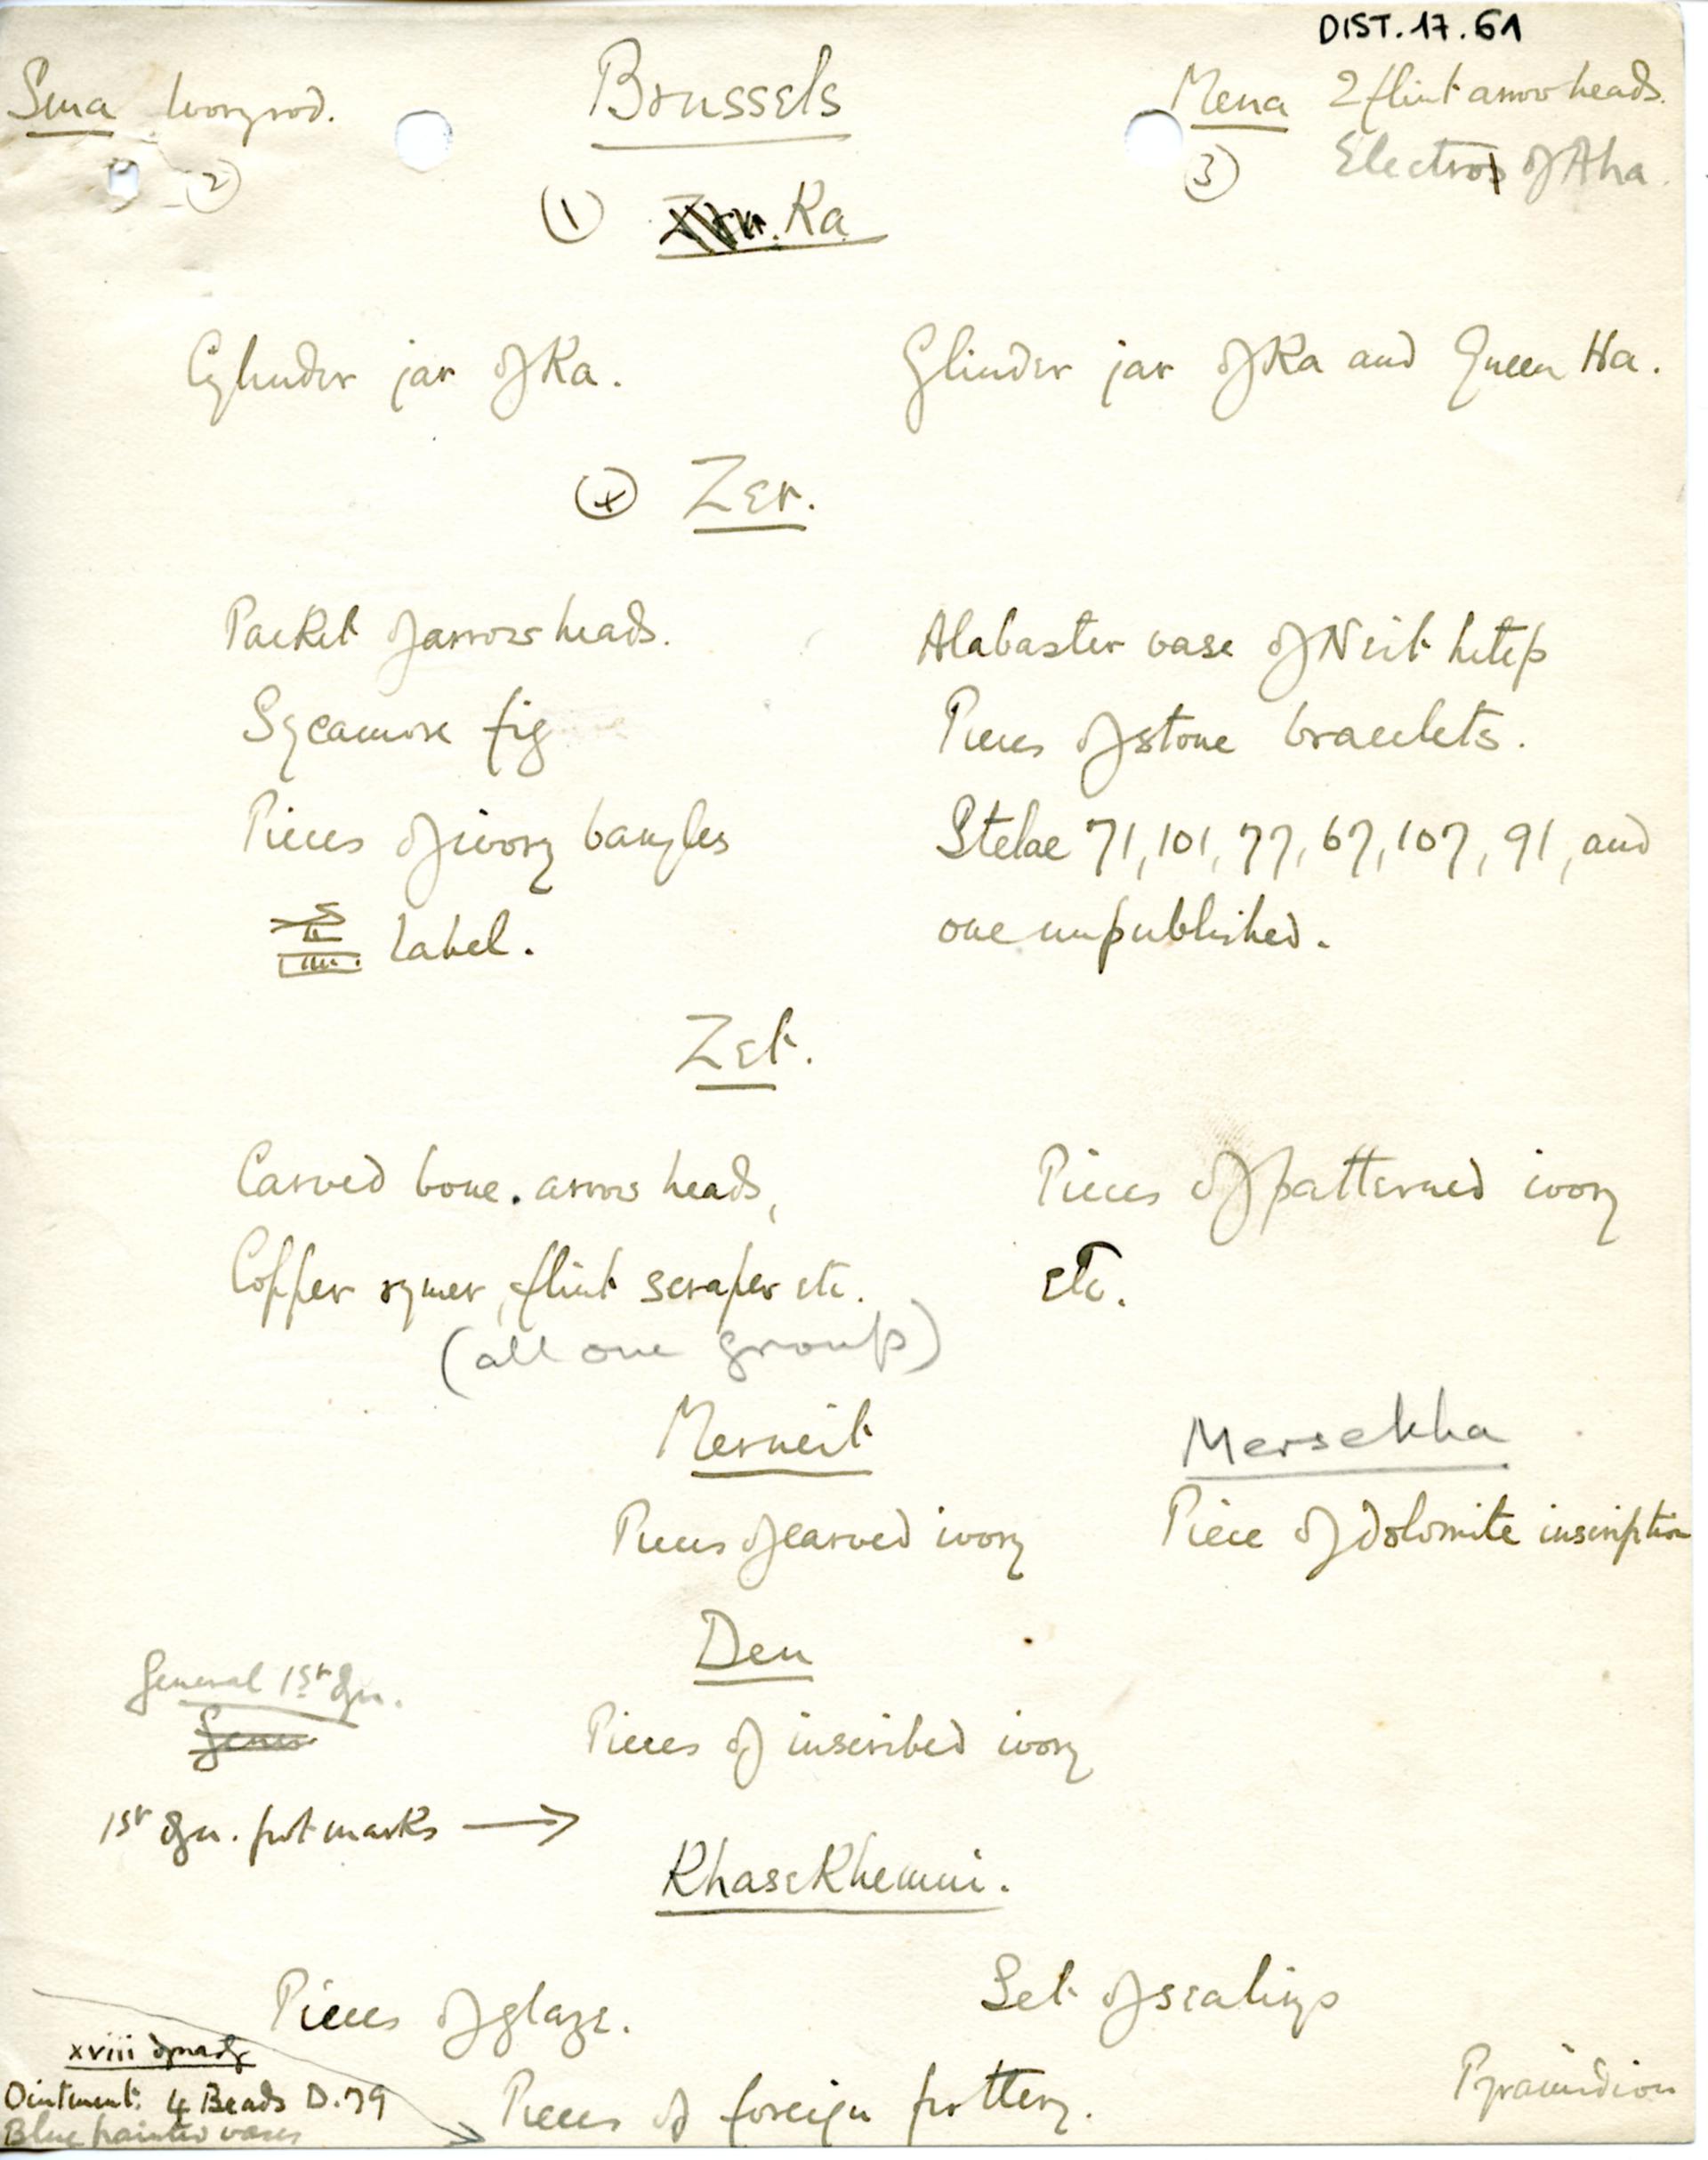 DIST. 17. 61
Sma Ivory rod.
Brussels
Mena 2 flint arrow heads.
(2)
(3) Electros of Aha.
(1) Ka
Cylinder jar of Ka.
Cylinder jar of Ka and Queen Ha.
(4) Zer.
Packet of arrow heads.
Alabaster vase of Neit hetep
Sycamore fig
Pieces of stone bracelets.
Pieces of ivory bangles
Stelae 71, 101, 77, 67, 107, 91, and
label.
one unpublished.
Zet.
Carved bone. arrow heads,
Pieces of patterned ivory
Copper rymer, flint scraper etc.
etc.
(all one group)
Merneit
Mersekha
Pieces of carved ivory
Piece of dolomite inscription
Den
General 1st Dyn.
Gener
Pieces of inscribed ivory
1st Dyn. pot marks →
Khasekhemui.
Pieces of glaze.
Set of sealings
xviii dynasty
Ointment: 4 Beads D.79
Pyramidion
Blue painted vases
Pieces of foreign pottery.